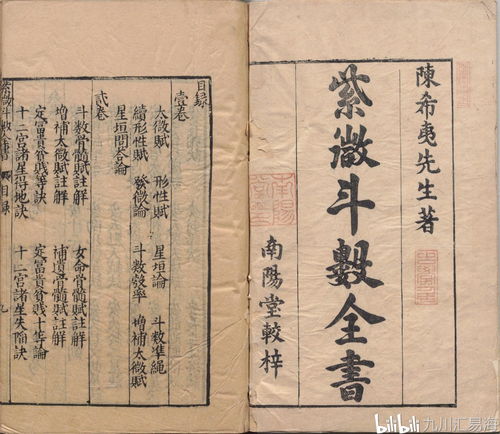 陳希夷先生著
紫微斗數全書
南陽堂較梓
目錄
壹卷
太微賦 形性賦 星垣論 斗數準繩
續形性賦 發微論 斗數發率 增補太微賦
星垣問荅論
貳卷
斗數骨髓賦註解 女命骨髓賦註解
增補太微賦註解 補遺骨髓賦註解
定富貴貧賤等訣 定富貴貧賤十等論
十二宮諸星得地訣 十二宮諸星失陷訣
紫微斗數全書 目錄
bilibili 九川汇易海